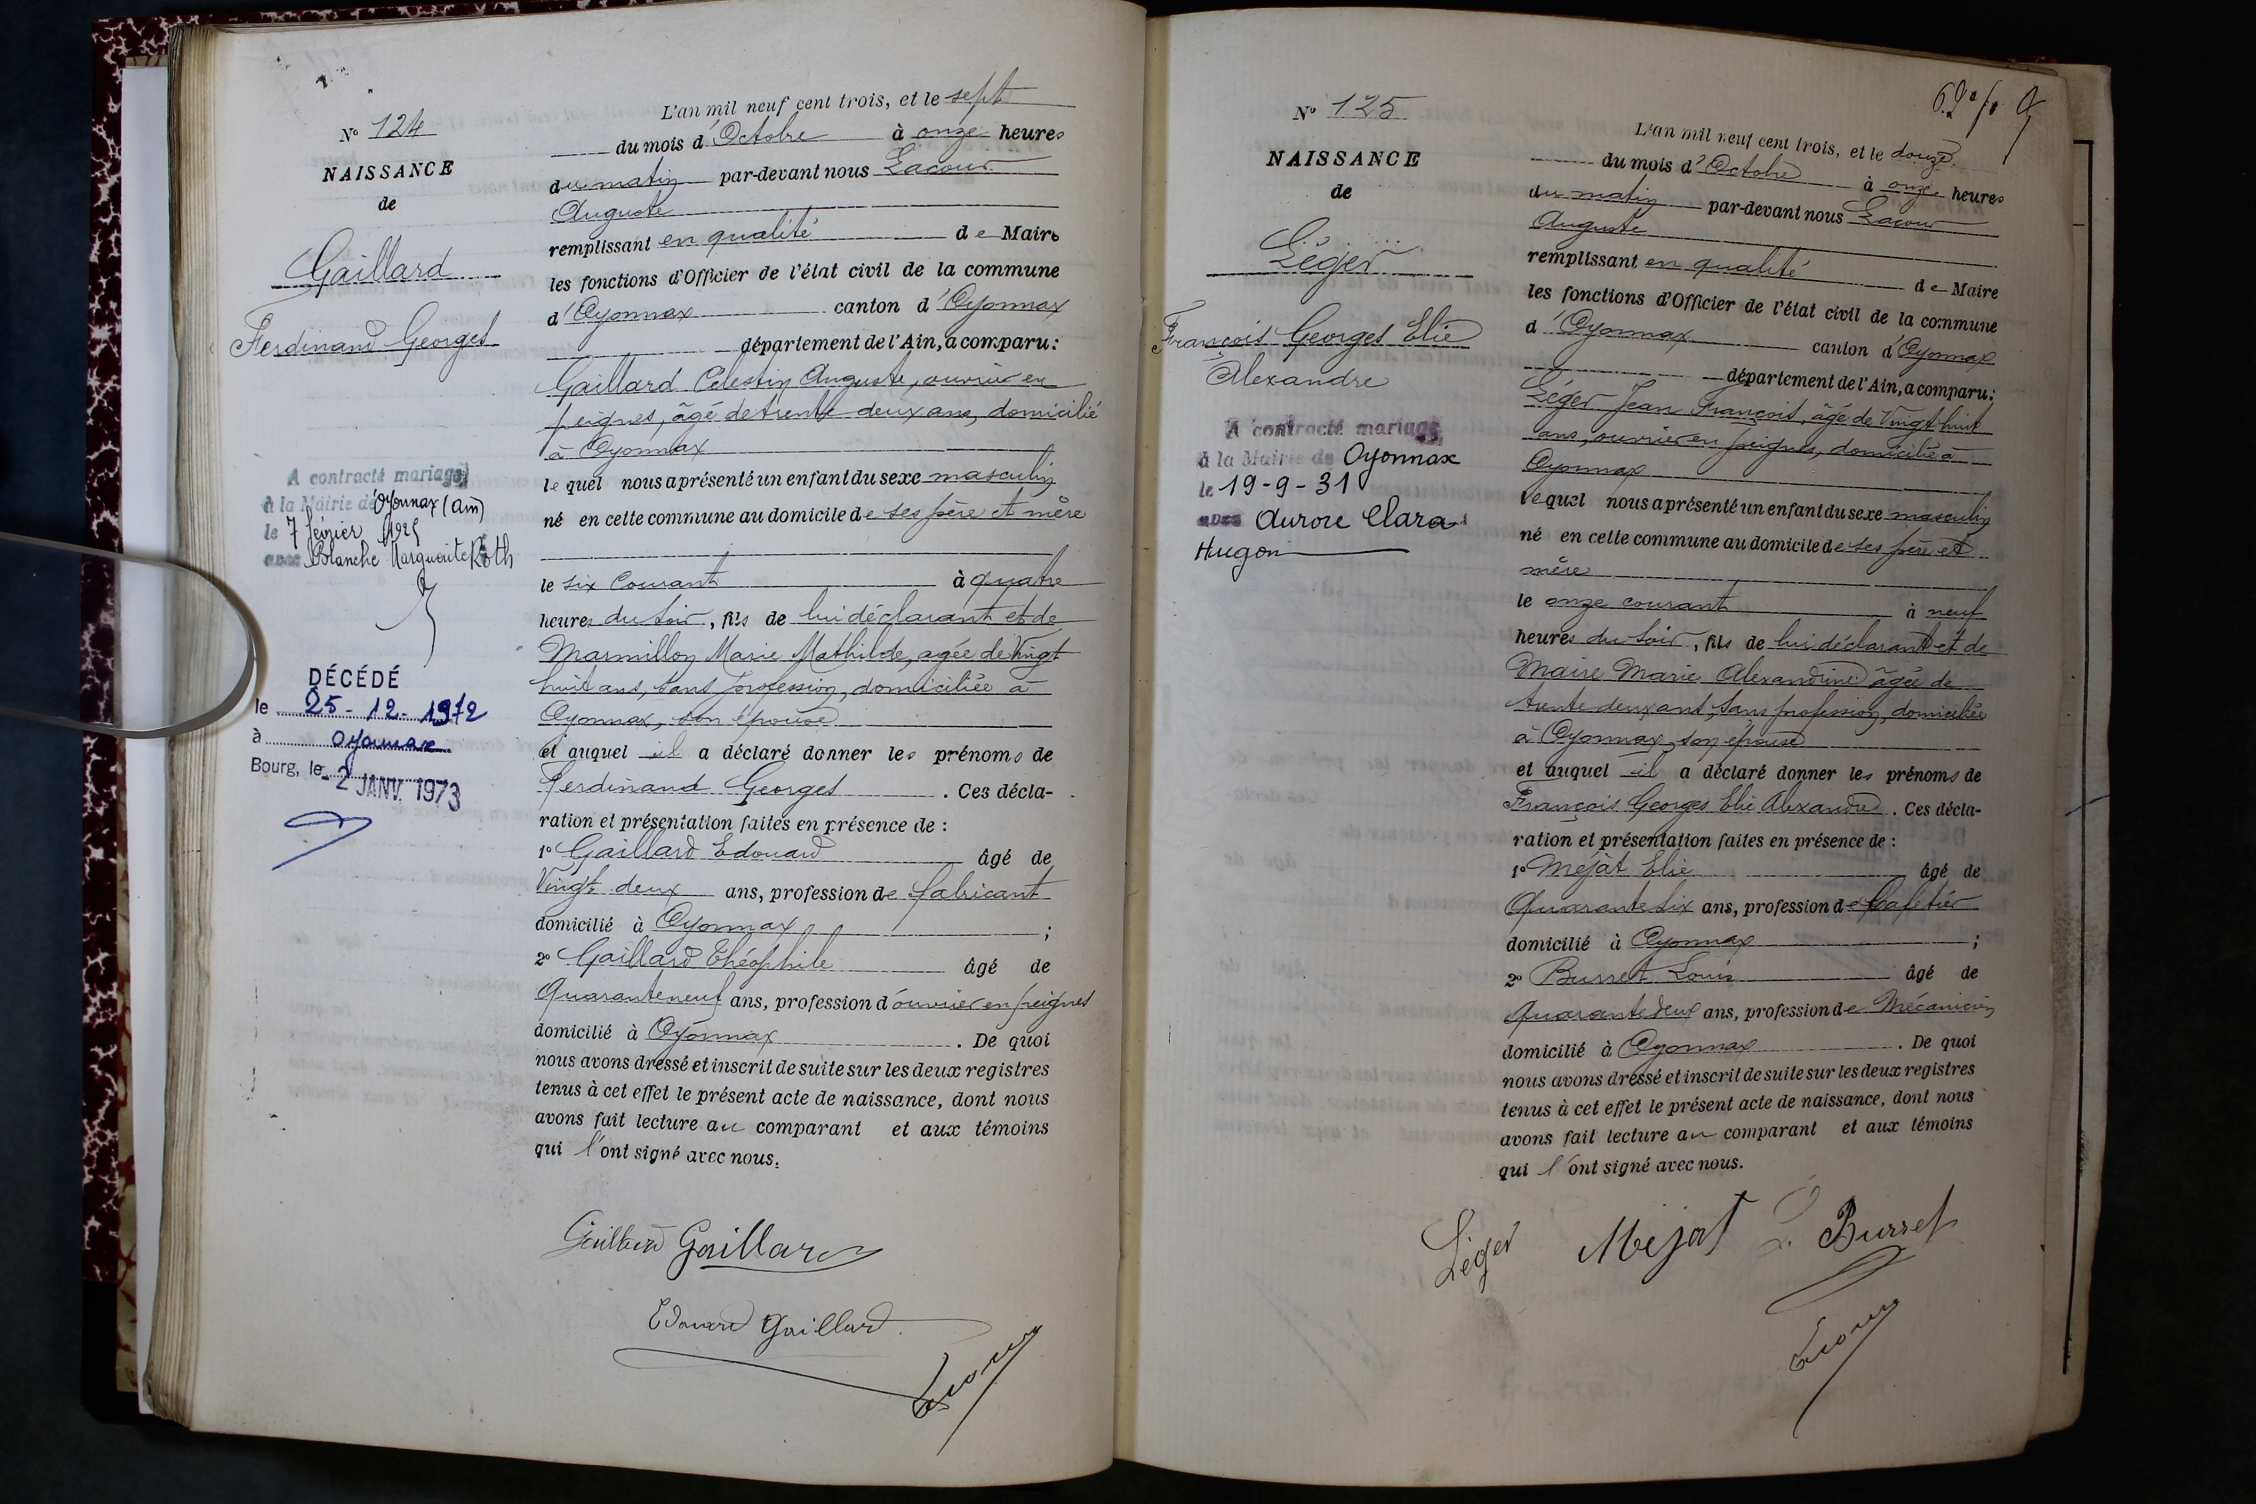 N° 124
NAISSANCE
de
Gaillard
Ferdinand Georges
A contracté mariage
à la Mairie de Oyonnax (Ain)
le 7 février 1925
avec Blanche Marguerite Roth
DÉCÉDÉ
le 25-12-1972
à Oyonnax
Bourg, le 2 JANV. 1973
L'an mil neuf cent trois, et le sept
du mois d'Octobre à onze heures
du matin par-devant nous Lacour
Auguste
remplissant en qualité de Maire
les fonctions d'Officier de l'état civil de la commune
d'Oyonnax canton d'Oyonnax
département de l'Ain, a comparu :
Gaillard Célestin Auguste, ouvrier en
peignes, âgé de trente deux ans, domicilié
à Oyonnax
lequel nous a présenté un enfant du sexe masculin
né en cette commune au domicile de ses père et mère
le six courant à quatre
heures du soir, fils de lui déclarant et de
Marmillon Marie Mathilde, agée de Vingt
huit ans, sans profession, domiciliée à
Oyonnax, son épouse
et auquel il a déclaré donner les prénoms de
Ferdinand Georges. Ces décla-
ration et présentation faites en présence de :
1° Gaillard Edouard âgé de
Vingt deux ans, profession de fabricant
domicilié à Oyonnax ;
2° Gaillard Théophile âgé de
Quarante neuf ans, profession d'ouvrier en peignes
domicilié à Oyonnax. De quoi
nous avons dressé et inscrit de suite sur les deux registres
tenus à cet effet le présent acte de naissance, dont nous
avons fait lecture au comparant et aux témoins
qui l'ont signé avec nous.
Gaillard Gaillard
Edouard Gaillard
Lacour
N° 125
NAISSANCE
de
Léger
François Georges Elie
Alexandre
A contracté mariage
à la Mairie de Oyonnax
le 19-9-31
avec Aurore Clara
Hugon
L'an mil neuf cent trois, et le douze
du mois d'Octobre à onze heures
du matin par-devant nous Lacour
Auguste
remplissant en qualité de Maire
les fonctions d'Officier de l'état civil de la commune
d'Oyonnax canton d'Oyonnax
département de l'Ain, a comparu :
Léger Jean François, âgé de Vingt huit
ans, ouvrier en peignes, domicilié à
Oyonnax
lequel nous a présenté un enfant du sexe masculin
né en cette commune au domicile de ses père et
mère
le onze courant à neuf
heures du soir, fils de lui déclarant et de
Maire Marie Alexandrine âgée de
trente deux ans, sans profession, domiciliée
à Oyonnax, son épouse
et auquel il a déclaré donner les prénoms de
François Georges Elie Alexandre. Ces décla-
ration et présentation faites en présence de :
1° Méjat Elie âgé de
Quarante six ans, profession de Cafetier
domicilié à Oyonnax ;
2° Burret Louis âgé de
Quarante deux ans, profession de Mécanicien
domicilié à Oyonnax. De quoi
nous avons dressé et inscrit de suite sur les deux registres
tenus à cet effet le présent acte de naissance, dont nous
avons fait lecture au comparant et aux témoins
qui l'ont signé avec nous.
Léger Méjat L. Burret
Lacour